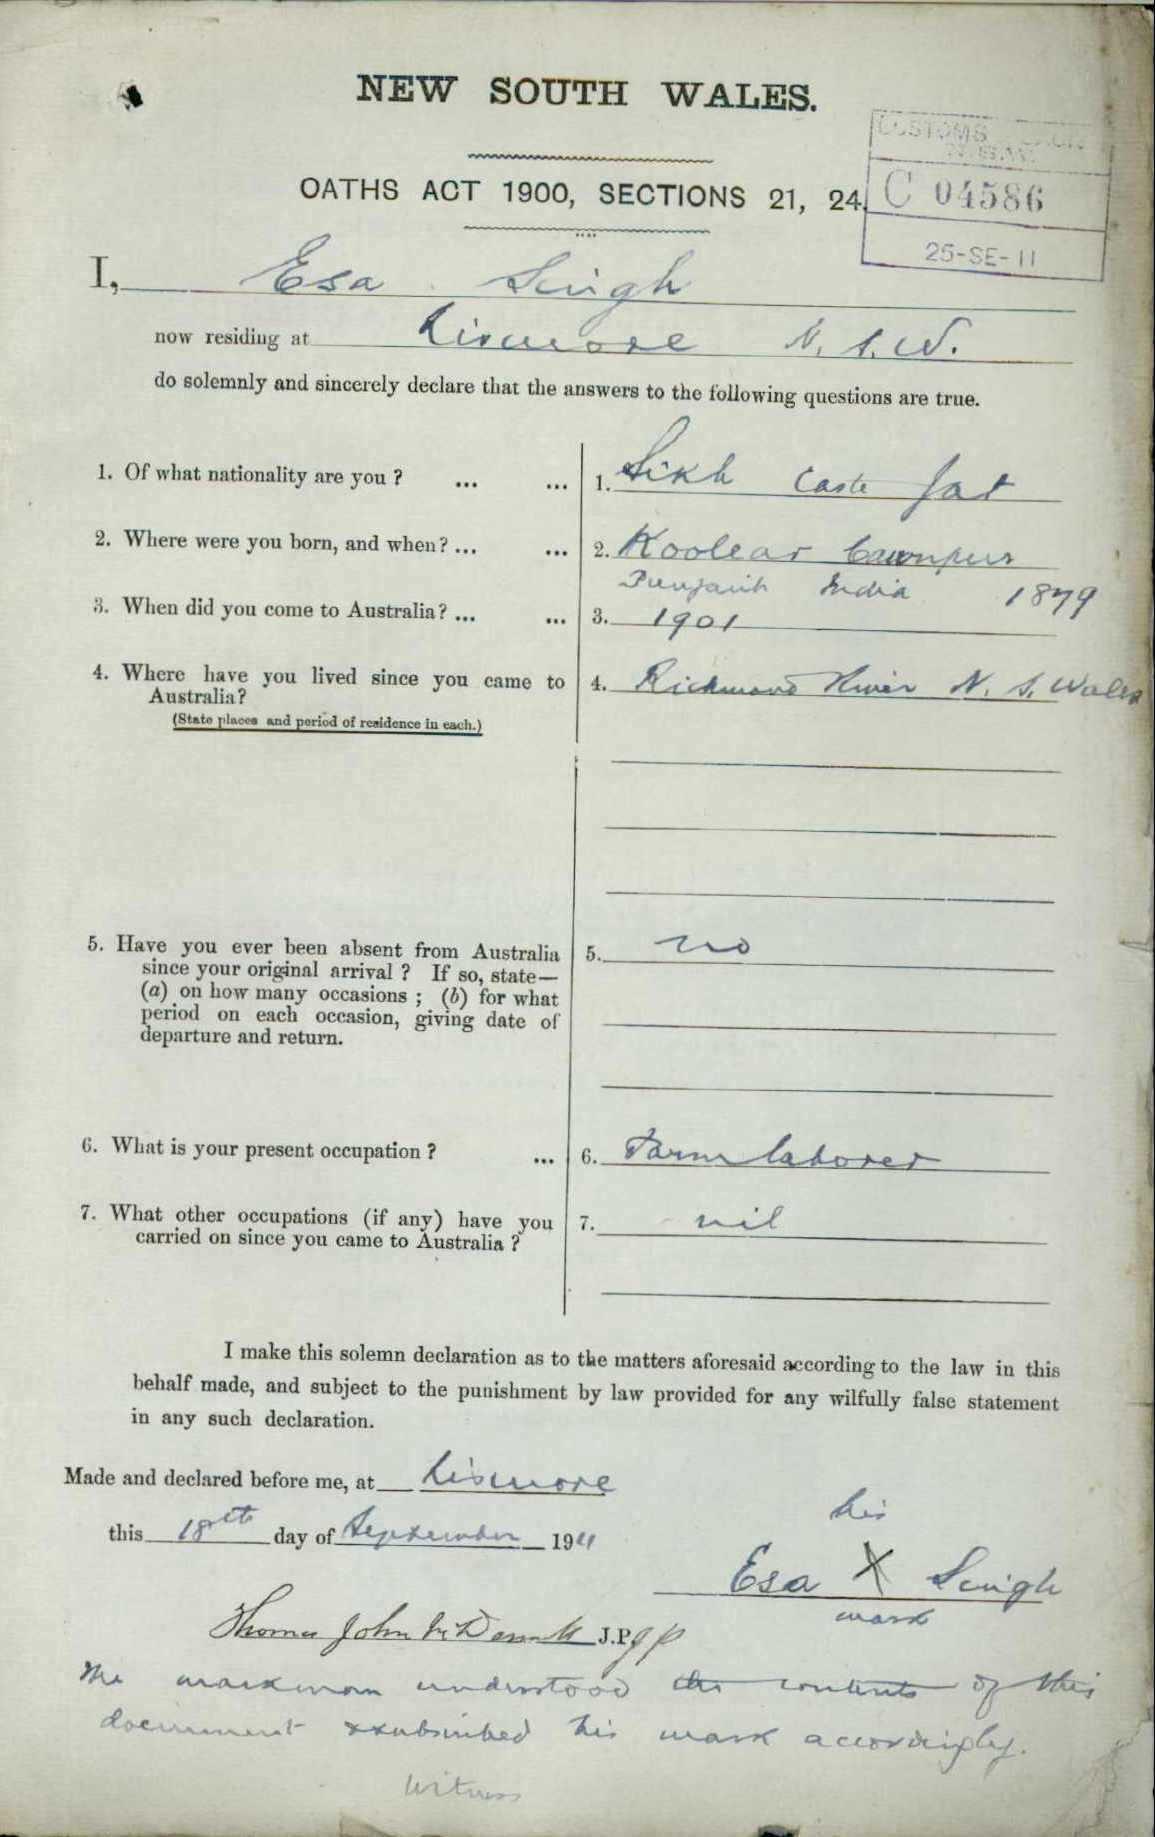 NEW SOUTH WALES.
CUSTOMS
N.S.W.
OATHS ACT 1900, SECTIONS 21, 24.
C 04586
25-SE-11
I, Esa Singh
now residing at Lismore N.S.W.
do solemnly and sincerely declare that the answers to the following questions are true.
1. Of what nationality are you? ... ... 1. Sikh Caste Jat
2. Where were you born, and when? ... ... 2. Koolear
Punjaub India 1879
3. When did you come to Australia? ... ... 3. 1901
4. Where have you lived since you came to 4. Richmond River N. S. Wales
Australia?
(State places and period of residence in each.)
5. Have you ever been absent from Australia 5. no
since your original arrival? If so, state—
(a) on how many occasions; (b) for what
period on each occasion, giving date of
departure and return.
6. What is your present occupation? ... 6. Farm laborer
7. What other occupations (if any) have you 7. nil
carried on since you came to Australia?
I make this solemn declaration as to the matters aforesaid according to the law in this
behalf made, and subject to the punishment by law provided for any wilfully false statement
in any such declaration.
Made and declared before me, at Lismore
this 18th day of September 1911
his
Esa X Singh
mark
Thomas John J.P. JP
The marksman understood the contents of this
document his mark accordingly.
Witness